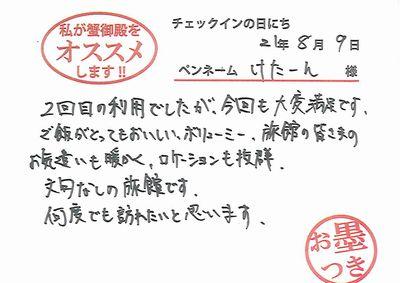 私が蟹御殿を
オススメ
します!!
チェックインの日にち
21年 8月 9日
ペンネーム けたーん 様
2回目の利用でしたが、今回も大変満足です。
ご飯がとってもおいしい、ボリューミー、旅館の皆さまの
お気遣いも暖かく、ロケーションも抜群。
文句なしの旅館です。
何度でも訪れたいと思います。
お墨
つき